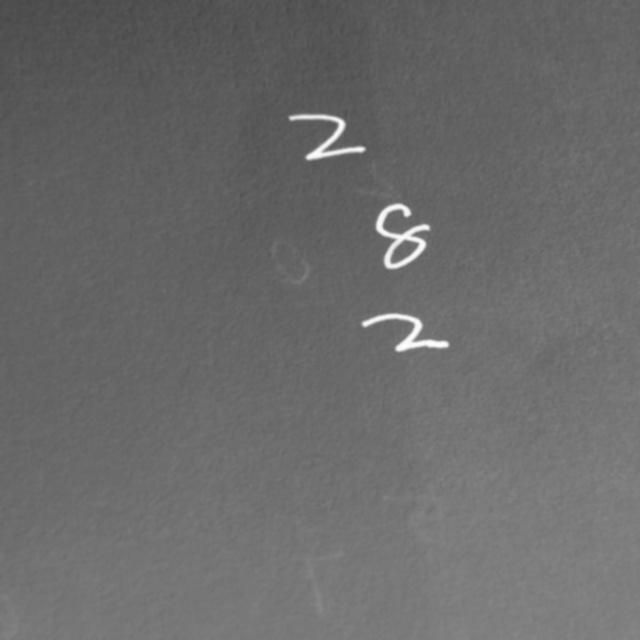 2
8
2